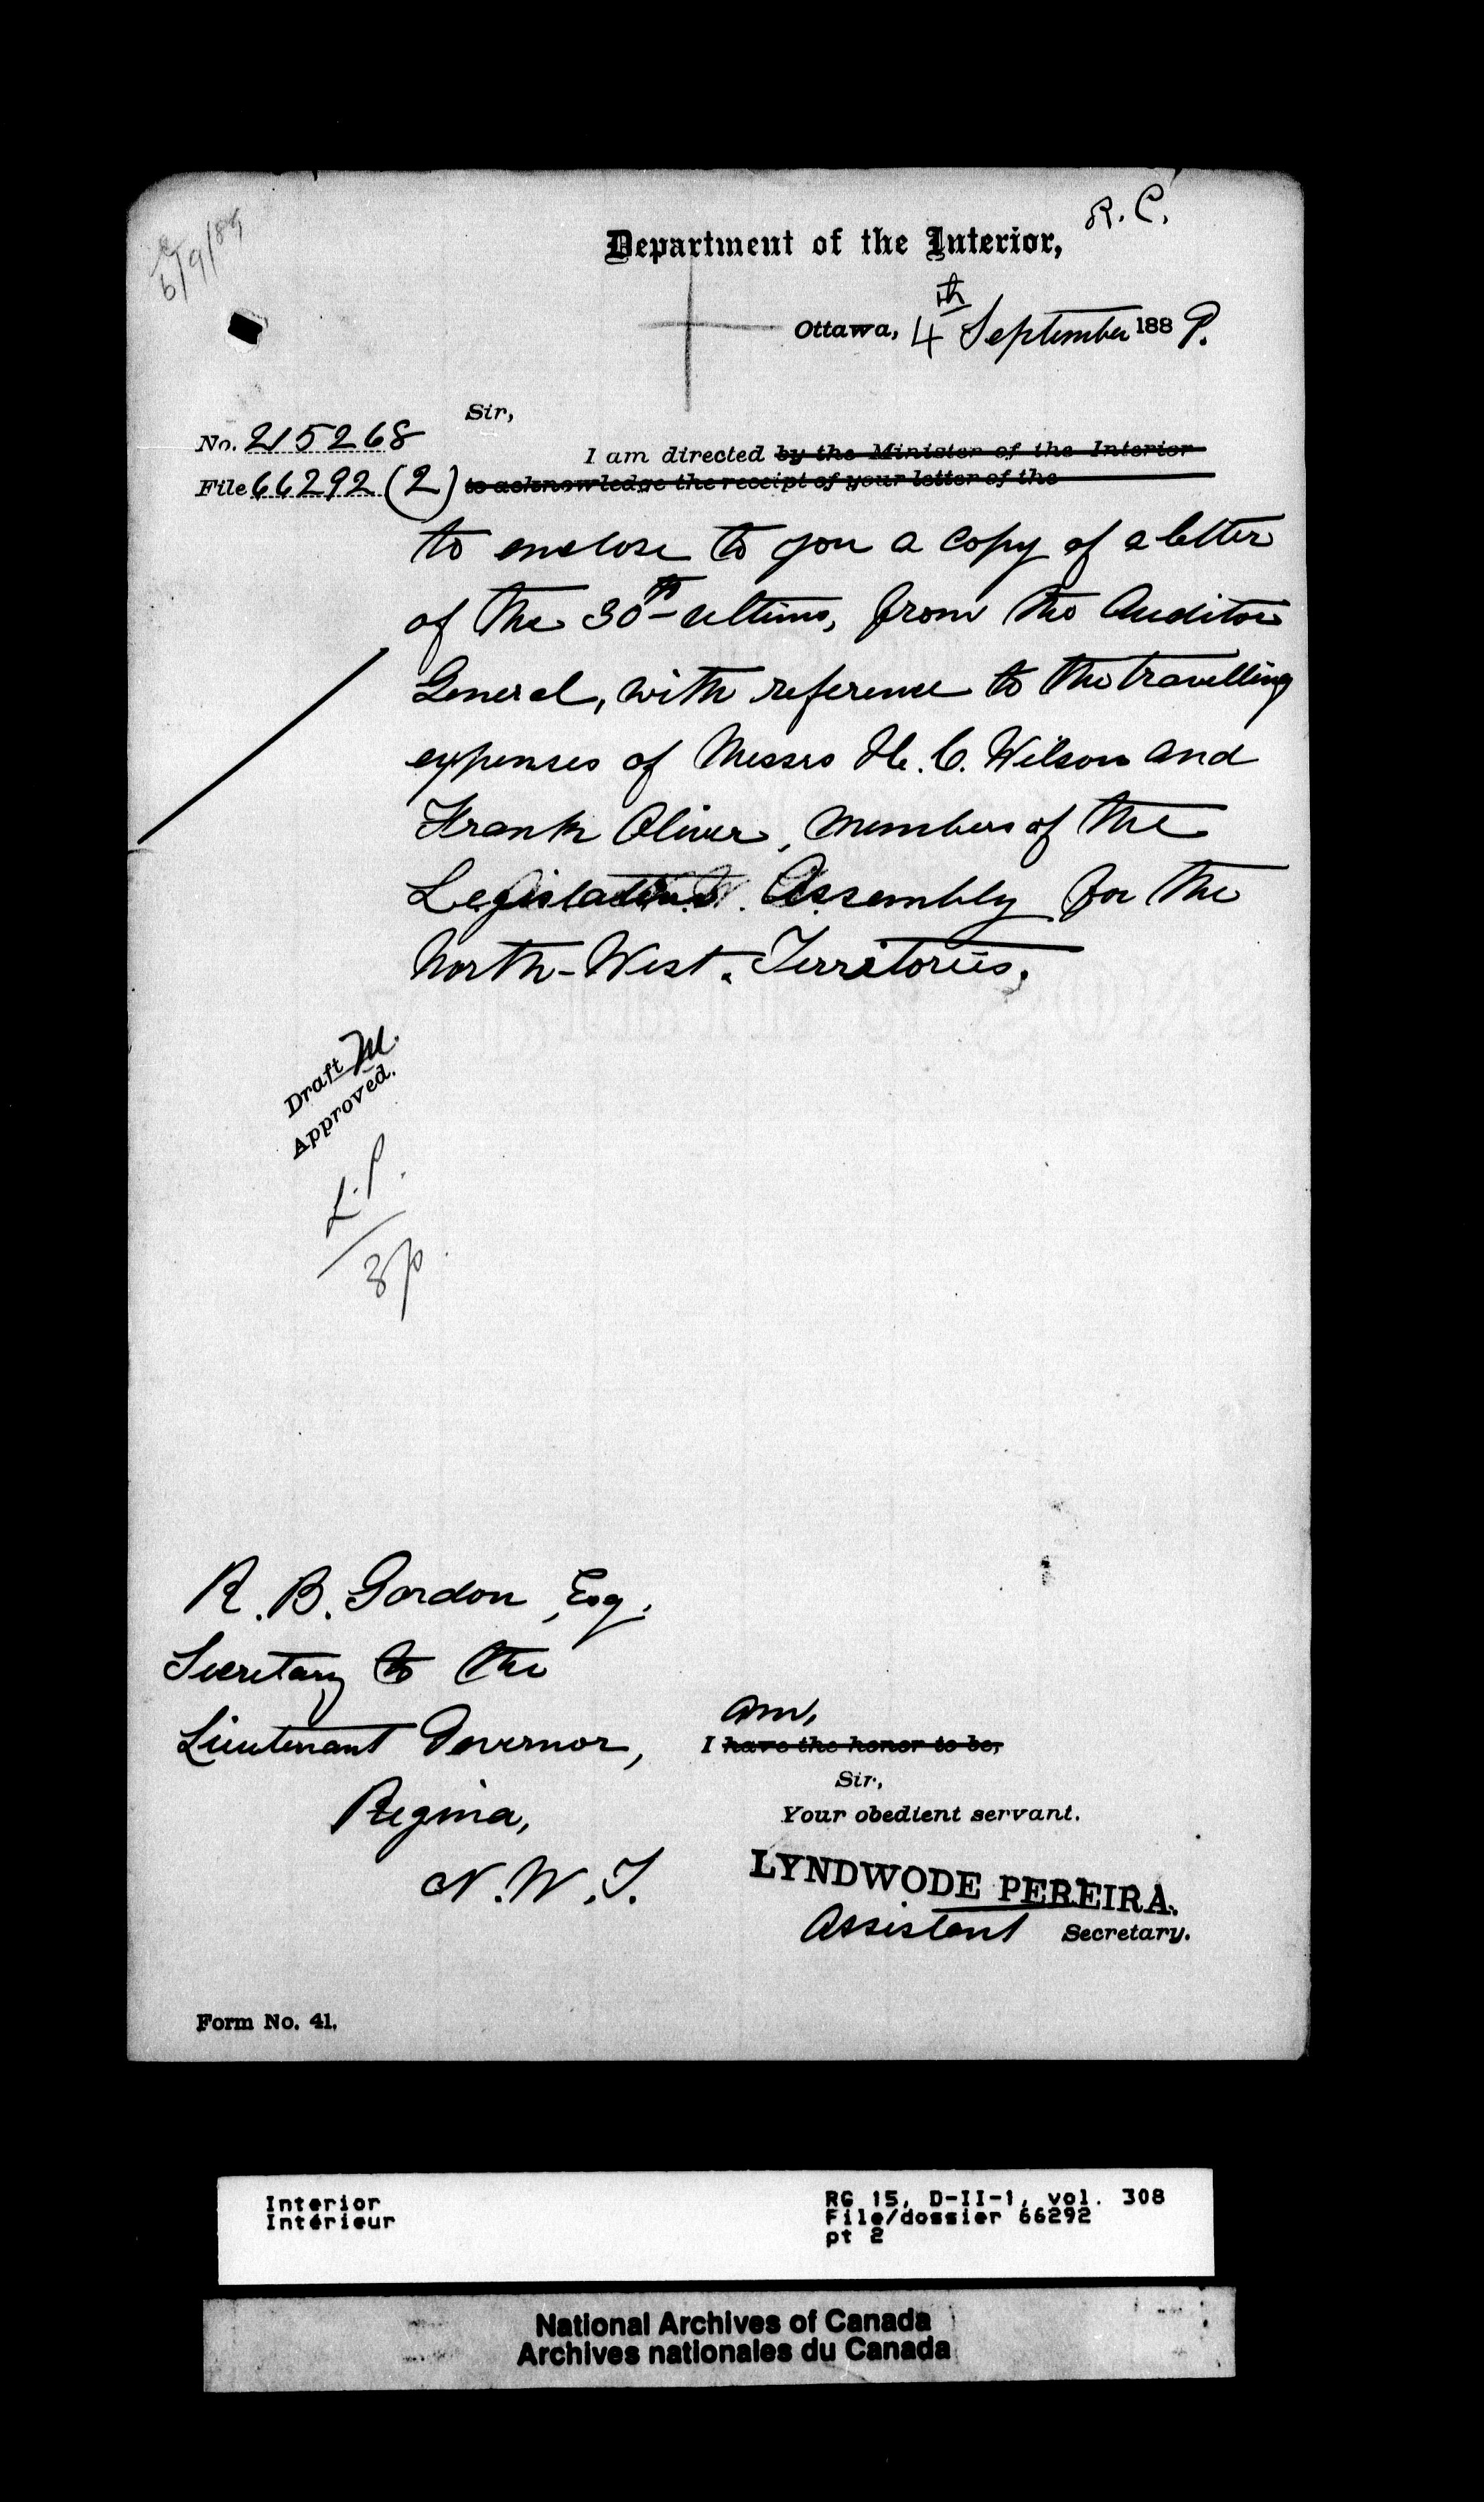 R. C.
6/9/89
Department of the Interior,
Ottawa, 4th September 1889.
Sir,
No. 215268
I am directed by the Minister of the Interior
File 66292 (2) to acknowledge the receipt of your letter of the
to enclose to you a copy of a letter
of the 30th ultimo, from the Auditor
General, with reference to the travelling
expenses of Messrs H. C. Wilson and
Frank Oliver, members of the
Legislative Assembly for the
North-West. Territories.
Draft M.
Approved.
L.P.
R. B. Gordon, Esq.
Secretary to the
Lieutenant Governor,
Regina,
N. W. T.
am,
I have the honor to be,
Sir,
Your obedient servant.
LYNDWODE PEREIRA.
Assistant Secretary.
Form No. 41.
Interior
Intérieur
RG 15, D-II-1, vol. 308
File/dossier 66292
pt 2
National Archives of Canada
Archives nationales du Canada